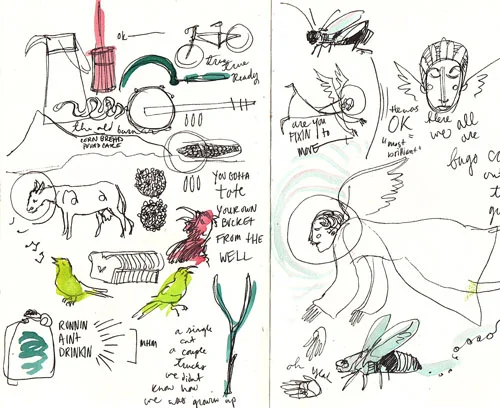 ok
tried
true
Ready
the old
CORN BREAD
POUND CAKE
YOU GOTTA
tote
YOUR OWN
BUCKET
FROM THE
WELL
RUNNIN
AIN'T
DRINKIN
MHM
a single
cat
a couple
trucks
we didnt
know how
we was growin up
are you
FIXIN to
MOVE
OK
"most
brilliant"
here
we all
are
bugs
oh yea